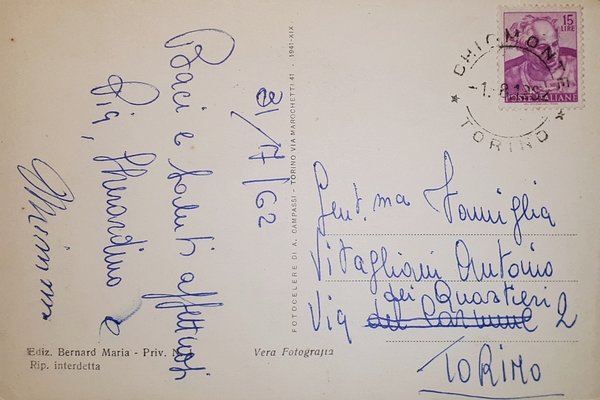 Baci e saluti affettuosi
Pia,
e
Mimma
31/7/62
FOTOCELERE DI A. CAMPASSI - TORINO VIA MAROCHETTI 41 - 1941-XIX
15
LIRE
POSTE ITALIANE
CHIOMONTE
1.8.1962
TORINO
Gent.ma Famiglia
Vitagliani Antonio
dei Quartieri
Via del Carmine 2
TORINO
Ediz. Bernard Maria - Priv. N.
Rip. interdetta
Vera Fotografia